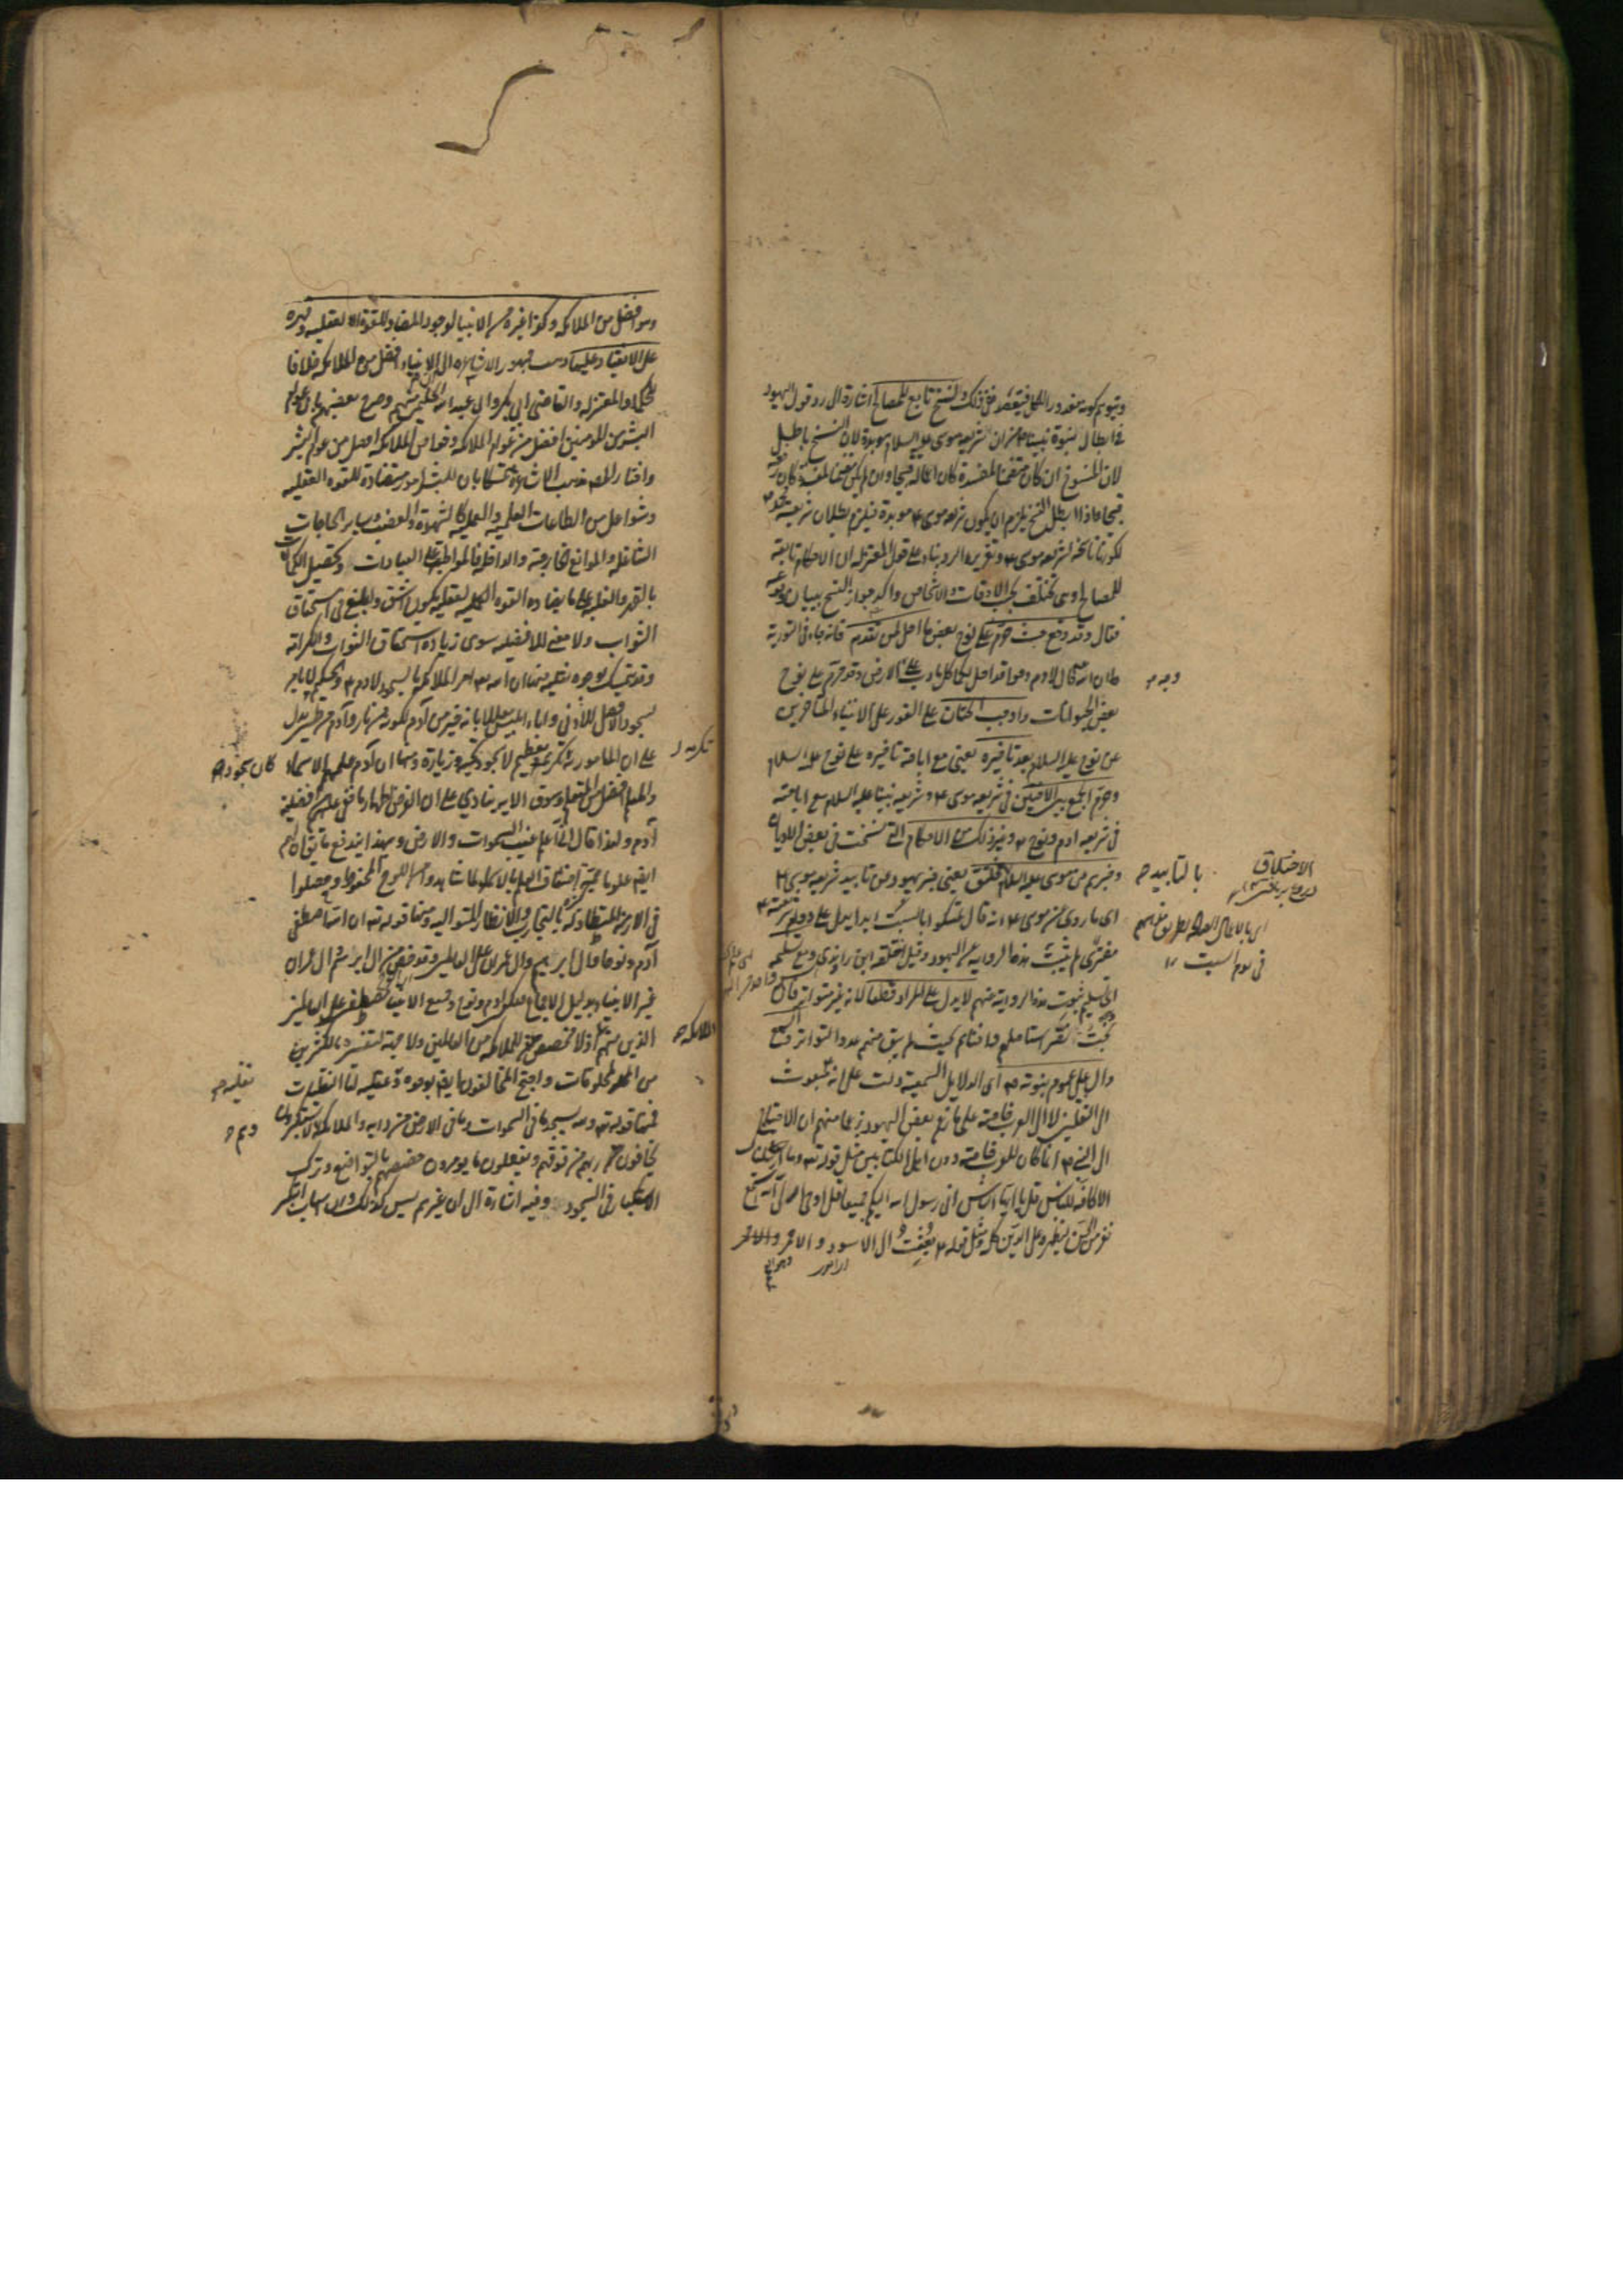 ويتوهم كونه مقدور الكل فيقصد نقض ذلك والنسخ تابع للمصالح اشارة الى رد قول اليهود
في ابطال نبوة نبينا من ان شريعة موسى عليه السلام موبدة لان النسخ باطل
لان المنسوخ ان كان متضمنا لمفسدة كان قبيحا وان لم يكن متضمنا لمفسدة كان
قبيحا فاذا بطل النسخ يلزم ان يكون شريعة موسى ع موبدة فيلزم بطلان شريعة
لكونها ناسخة لشريعة موسى ع وتقرير الرد بناء على قول المعتزلة ان الاحكام تابعة
للمصالح وهي تختلف بحسب الاوقات والاشخاص واكد جواز النسخ ببيان وقوعه
فقال وقد وقع حيث حرم على نوح بعض ما احل لمن تقدمه فانه جاء في التورية
ان الله قال لادم وحوا قد احل لكما كل ما دب على الارض وقد حرم على نوح
بعض الحيوانات واوجب الختان على الفور على الانبياء المتاخرين
عن نوح عليه السلام بعد تاخيره يعنى مع اباحة تاخيره على نوح عليه السلام
وحرم الجمع بين الاختين في شريعة موسى ع وشريعة نبينا عليه السلام مع اباحته
في شريعة ادم ونوح ع وغير ذلك من الاحكام التي نسخت في بعض الاديان
وخبرهم عن موسى عليه السلام مختلق يعنى خبر يهود عن تابيد شريعة موسى ع
اى ما روى عن موسى ع انه قال تمسكوا بالسبت ابدا يدل على دوام شرعه
مفترى لم يثبت هذه الرواية عن اليهود وقيل اختلقه ابن راوندى ومع تسليمه
اى تسليم ثبوت هذه الرواية عنهم لا يدل على المراد قطعا لانه غير متواتر فان
بخت نصر استاصلهم وافناهم بحيث لم يبق منهم عدد التواتر والسمع
دال على عموم نبوته ص اى الدلايل السمعية دلت على انه مبعوث
الى الثقلين لا الى العرب خاصة على ما زعم بعض اليهود زعما منهم ان الاحتياج
الى النبي ص انما كان للعرب خاصة دون اهل الكتابين مثل قوله تعه وما ارسلناك
الا كافة للناس قل يا ايها الناس انى رسول الله اليكم جميعا قل اوحى الى انه استمع
نفر من الجن ليظهره على الدين كله ومثل قوله ع بعثت الى الاسود والاحمر
بالتابيد
الاختلاق
في يوم السبت
وهو افضل من الملائكة وكذا غيره من الانبيا لوجود المضاد للقوة العقلية وقهره
على الانقياد عليها ذهب جمهور الاشاعرة الى ان الانبياء افضل من الملائكة خلافا
للحكما والمعتزلة والقاضى ابى بكر وابى عبد الله الحليمى منهم وصرح بعضهم بان عوام
البشر من المومنين افضل من عوام الملائكة وخواص الملائكة افضل من عوام البشر
واختار المص مذهب الاشاعرة متمسكا بان للبشر امور مضادة للقوة العقلية
وشواغل من الطاعات العلمية والعملية كالشهوة والغضب وساير الحاجات
الشاغلة والموانع الخارجة والداخلة فالمواظبة على العبادات وتحصيل الكمالات
بالقهر والغلبة على ما يضاد القوة العقلية يكون اشق وابلغ في استحقاق
الثواب ولا معنى للافضلية سوى زيادة استحقاق الثواب والكرامة
وقد يتمسك بوجوه نقلية منها ان الله تعه امر الملائكة بالسجود لادم ع والحكيم لا يامر
بسجود الافضل للادنى واباء ابليس معللا بانه خير من آدم لكونه من نار وآدم من طين يدل
على ان المامور به سجود تكرمة وتعظيم لا سجود تحية وزيارة ومنها ان آدم علمهم الاسماء
والمعلم افضل من المتعلم وسوق الاية ينادى على ان الغرض اظهار ما خفى عليهم من افضلية
آدم ولهذا قال انى اعلم غيب السموات والارض وبهذا يندفع ما يقال ان لهم
ايضا علوما جمة اضعاف العلم بالاسماء لما شاهدوا من اللوح المحفوظ وحصلوا
في الازمنة المتطاولة بالتجارب والانظار المتوالية ومنها قوله تعه ان الله اصطفى
آدم ونوحا وال ابرهيم وال عمران على العالمين وقد خص من ال ابرهيم وال عمران
غير الانبياء بدليل الاجماع فيكون ادم ونوح وجميع الانبياء مصطفين على العالمين
الذين منهم الملائكة اذ لا مخصص للملائكة من العالمين ولا جهة لتفسيره بالكثير
من المخلوقات واحتج المخالفون ايضا بوجوه نقلية وعقلية اما النقليات
فمنها قوله تعه ولله يسجد ما في السموات وما في الارض من دابة والملائكة وهم لا يستكبرون
يخافون ربهم من فوقهم ويفعلون ما يومرون خصصهم بالتواضع وترك
الاستكبار في السجود وفيه اشارة الى ان غيرهم ليس كذلك وان اسباب التكبر